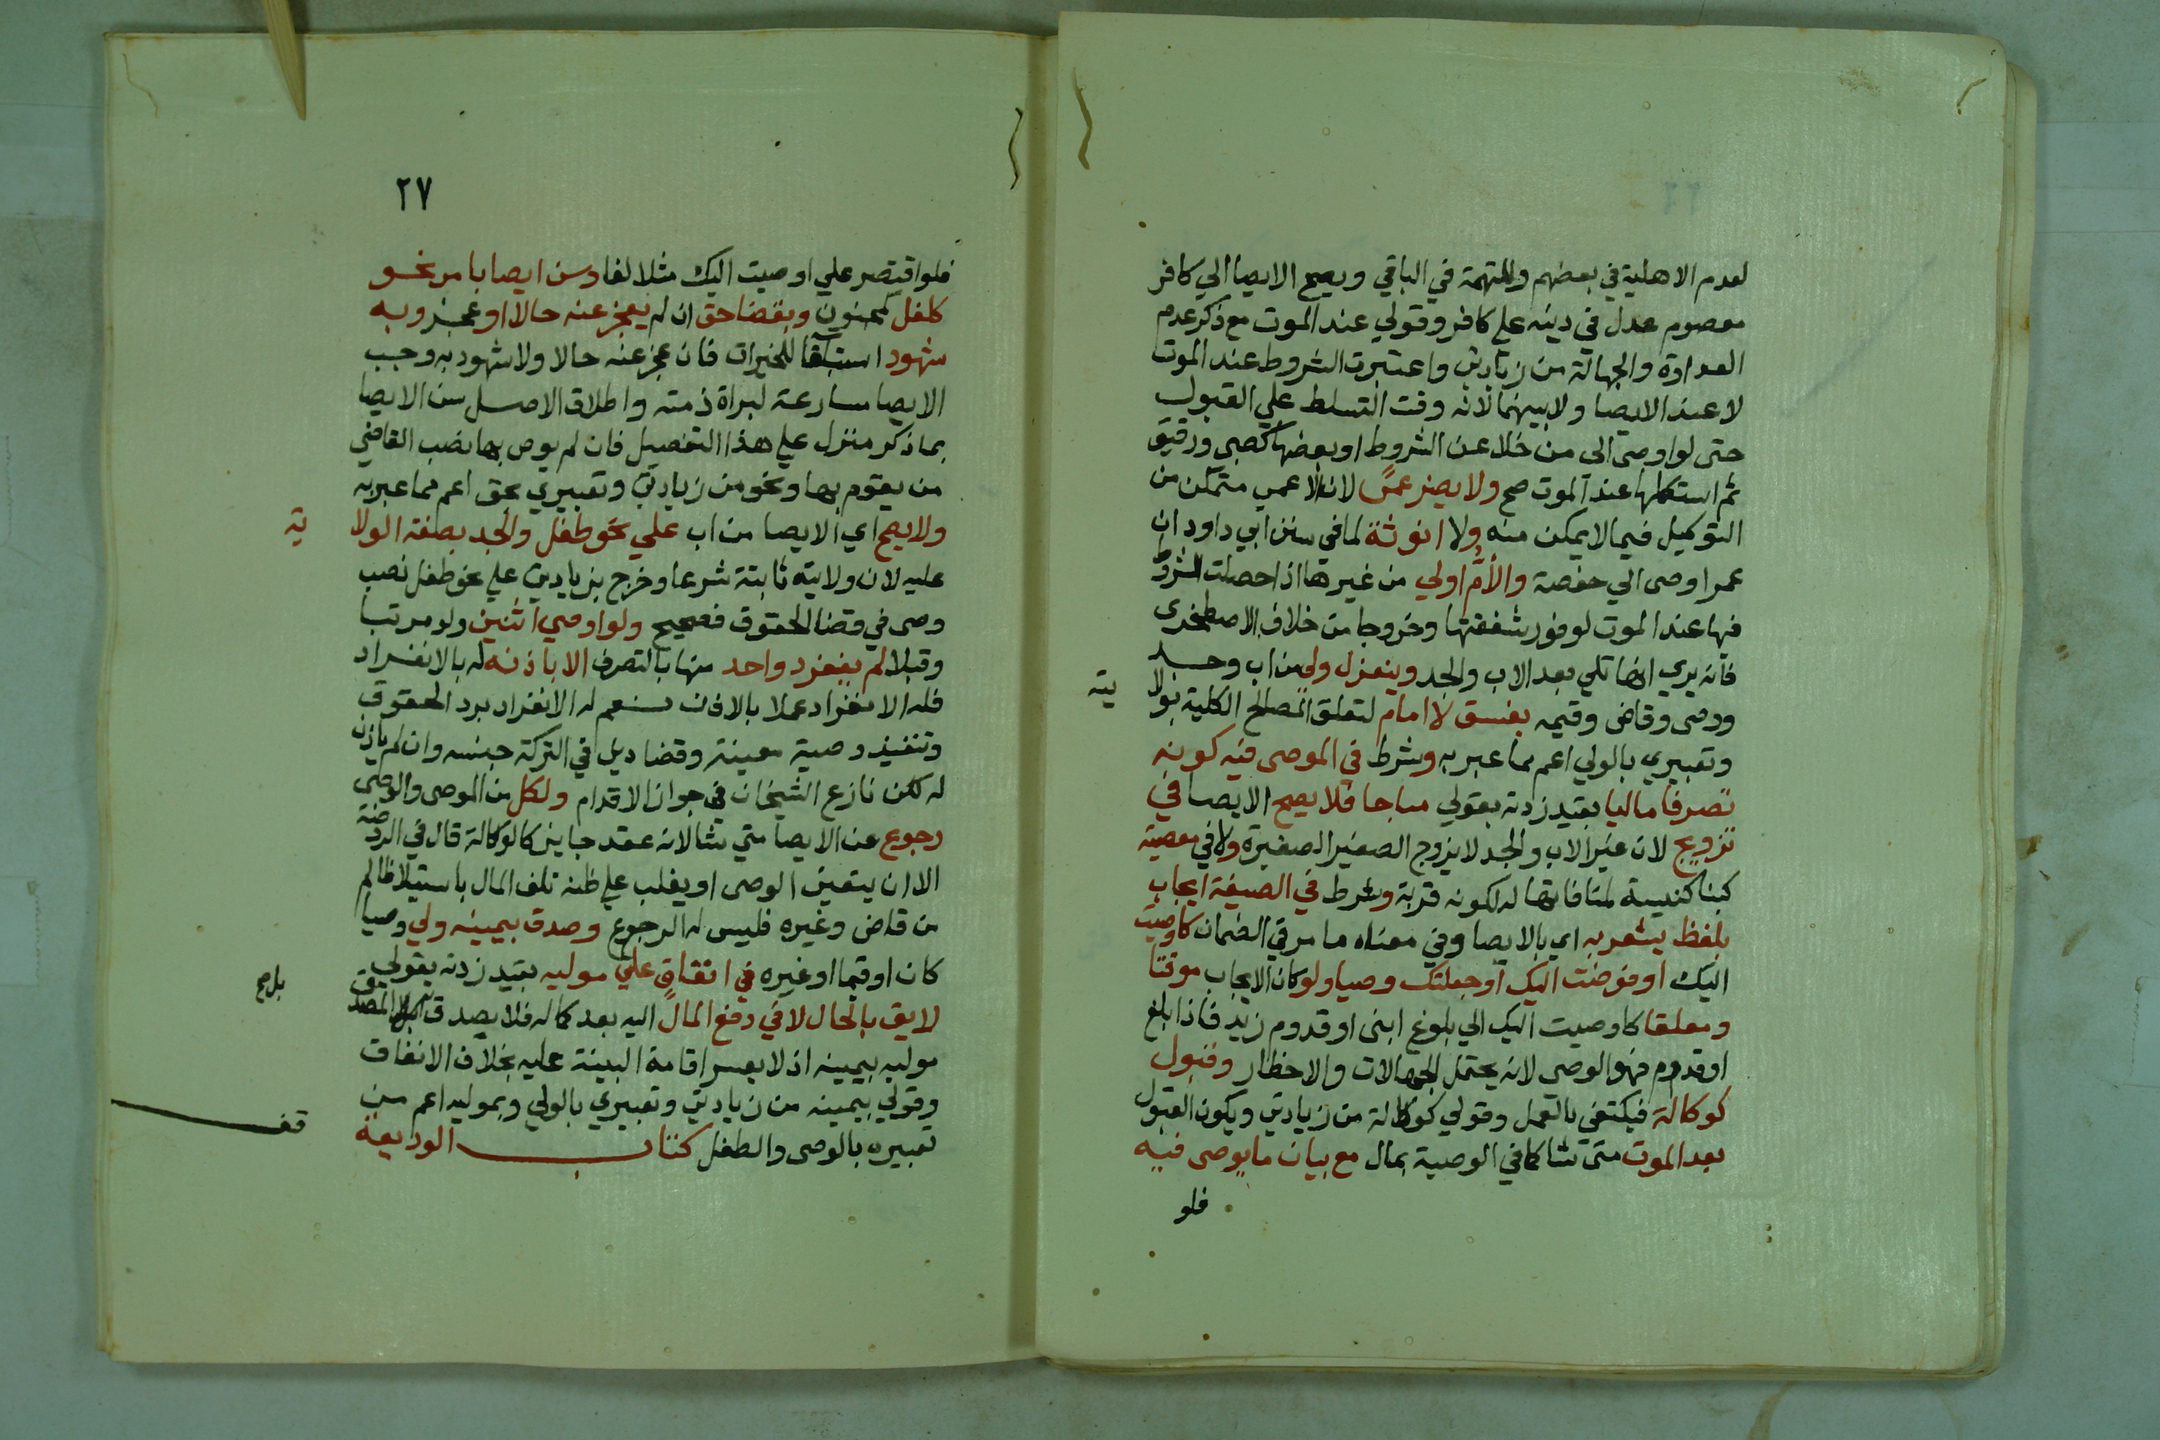 لعدم الاهلية في بعضهم وللتهمة في الباقي ويصح الايصا الي كافر
معصوم عدل في دينه علي كافر وقولي عند الموت مع ذكر عدم
العداوة والجهالة من زيادتي واعتبرت الشروط عند الموت
لا عند الايصا ولا بينهما لانه وقت التسلط علي القبول
حتى لو اوصى الى من خلا عن الشروط او بعضها كصبي ورقيق
ثم استكملها عند الموت صح ولا يضر عمى لان الاعمى متمكن من
التوكيل فيما لا يمكن منه ولا انوثة لما في سنن ابي داود ان
عمر اوصى الي حفصة والأم اولي من غيرها اذا حصلت الشروط
فيها عند الموت لوفور شفقتها وخروجا من خلاف الاصطخري
فانه يري انها تلي بعد الاب والجد وينعزل ولي من اب وجد
ووصى وقاض وقيمه بفسق لا امام لتعلق المصالح الكلية بولا
يته
وتعبيري بالولي اعم مما عبر به وشرط في الموصى فيه كونه
تصرفا ماليا بقيد زدته بقولي مباحا فلا يصح الايصا في
تزويج لان غير الاب والجد لا يزوج الصغير الصغيرة ولا في معصية
كبنا كنيسة لمنافاتها له لكونه قربة وشرط في الصيغة ايجاب
بلفظ يشعر به اي بالايصا وفي معناه ما مر في الضمان كاوصيت
اليك او فوضت اليك او جعلتك وصيا ولو كان الايجاب موقتا
ومعلقا كاوصيت اليك الي بلوغ ابنى او قدوم زيد فاذا بلغ
او قدم فهو الوصى لانه يحتمل الجهالات والاخطار وقبول
كوكالة فيكتفي بالعمل وقولي كوكالة من زيادتي ويكون القبول
بعد الموت متى شا كما في الوصية بمال مع بيان ما يوصى فيه
فلو
٢٧
فلو اقتصر علي اوصيت اليك مثلا لغا وسن ايصا بامر نحو
كطفل كمجنون وبقضا حق ان لم يعجز عنه حالا او عجز وبه
شهود استباقا للخيرات فان عجز عنه حالا ولا شهود به وجب
الايصا مسارعة لبراة ذمته واطلاق الاصل سن الايصا
بما ذكر منزل علي هذا التفصيل فان لم يوص بها نصب القاضي
من يقوم بها ونحو من زيادتي وتعبيري بحق اعم مما عبر به
ولا يصح اي الايصا من اب علي نحو طفل والجد بصفة الولا
ية
عليه لان ولايته ثابتة شرعا وخرج بزيادتي علي نحو طفل نصب
وصى في قضا الحقوق فصحيح ولو اوصي اثنين ولو مرتبا
وقبلا لم ينفرد واحد منهما بالتصرف الا باذنه له بالانفراد
فله الانفراد عملا بالاذن نعم له الانفراد برد الحقوق
وتنفيذ وصية معينة وقضا دين في التركة جنسه وان لم ياذن
له لكن نازع الشيخان في جواز الاقدام ولكل من الموصى والوصى
رجوع عن الايصا متي شا لانه عقد جايز كالوكالة قال في الروضة
الا ان يتعين الوصى او يغلب علي ظنه تلف المال باستيلا ظالم
من قاض وغيره فليس له الرجوع وصدق بيمينه ولي وصيا
كان او قيما او غيره في انفاق علي موليه بقيد زدته بقولي
لايق بالحال لا في دفع المال اليه بعد كماله فلا يصدق بل المصدق
بل صح
موليه بيمينه اذ لا يعسر اقامة البينة عليه بخلاف الانفاق
وقولي بيمينه من زيادتي وتعبيري بالولي وبموليه اعم من
قف
تعبيره بالوصى والطفل كتاب الوديعة